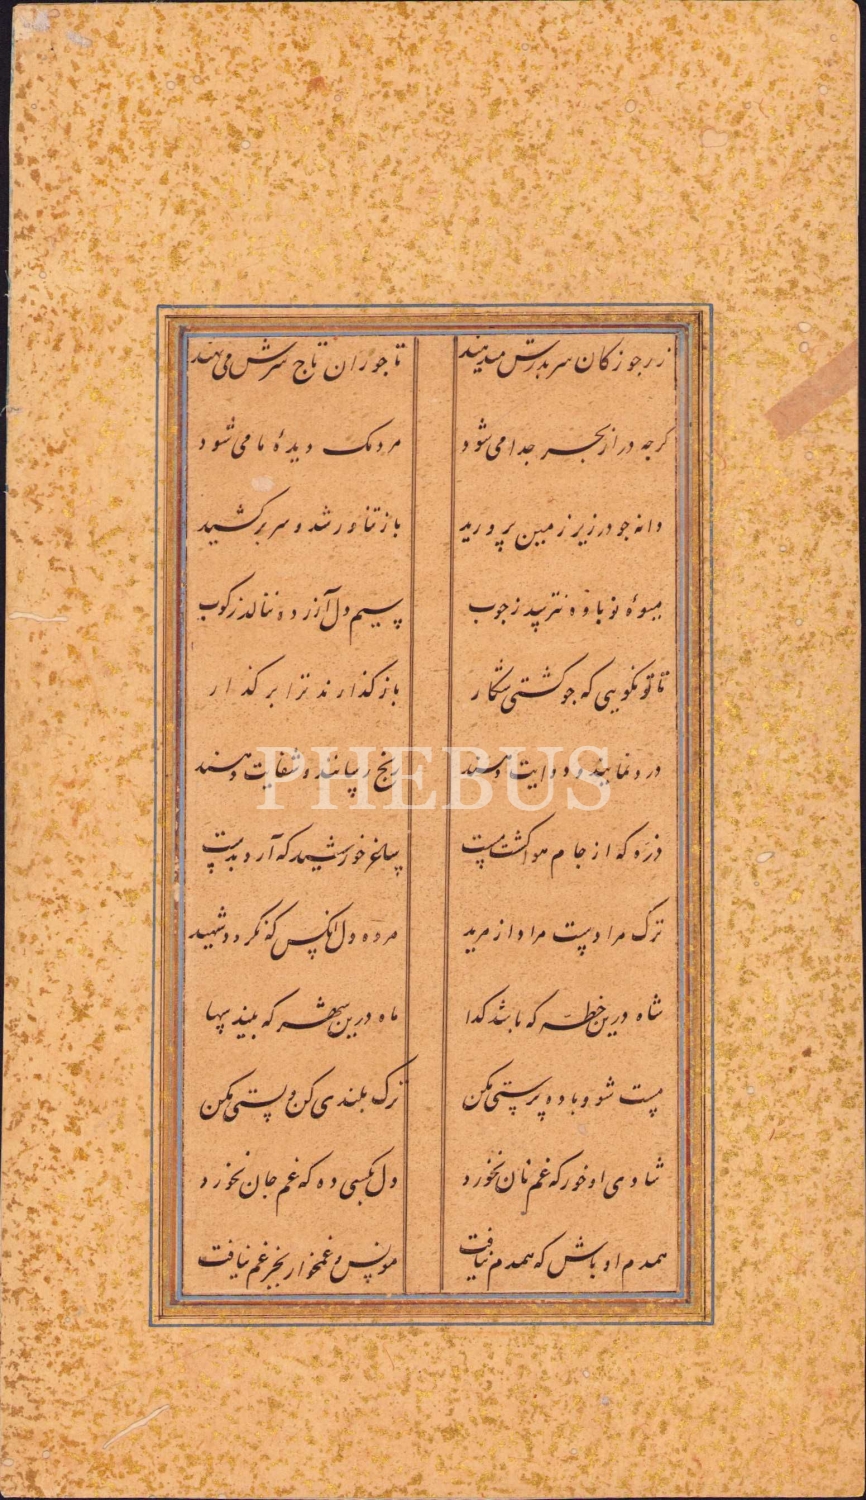 زر چو زکان سر بدرش میدهند تاجوران تاج سرش می نهند
گرچه در از بحر جدا می شود مردمک دیدهٔ ما می شود
دانه چو در زیر زمین پرورید باز تناور شد و سر برکشید
میوهٔ نوباوه نترسد ز چوب سیم دل آزرده ننالد ز کوب
تا تو نگویی که چو گشتی شکار باز گذارند ترا بر گذار
درد نمایند و دوایت دهند رنج رسانند و شفایت دهند
ذره که از جام هوا گشت مست ساغر خورشید که آرد بدست
ترک مرادست مراد از مرید مرده دل آنکس که نگردد شهید
شاه درین خطه که باشد گدا ماه درین شهر که بیند بها
مست شو و باده پرستی مکن ترک بلندی کن و پستی مکن
شادی او خور که غم نان نخورد دل بکسی ده که غم جان نخورد
همدم او باش که همدم نیافت مونس و غمخوار بجز غم نیافت
PHEBUS